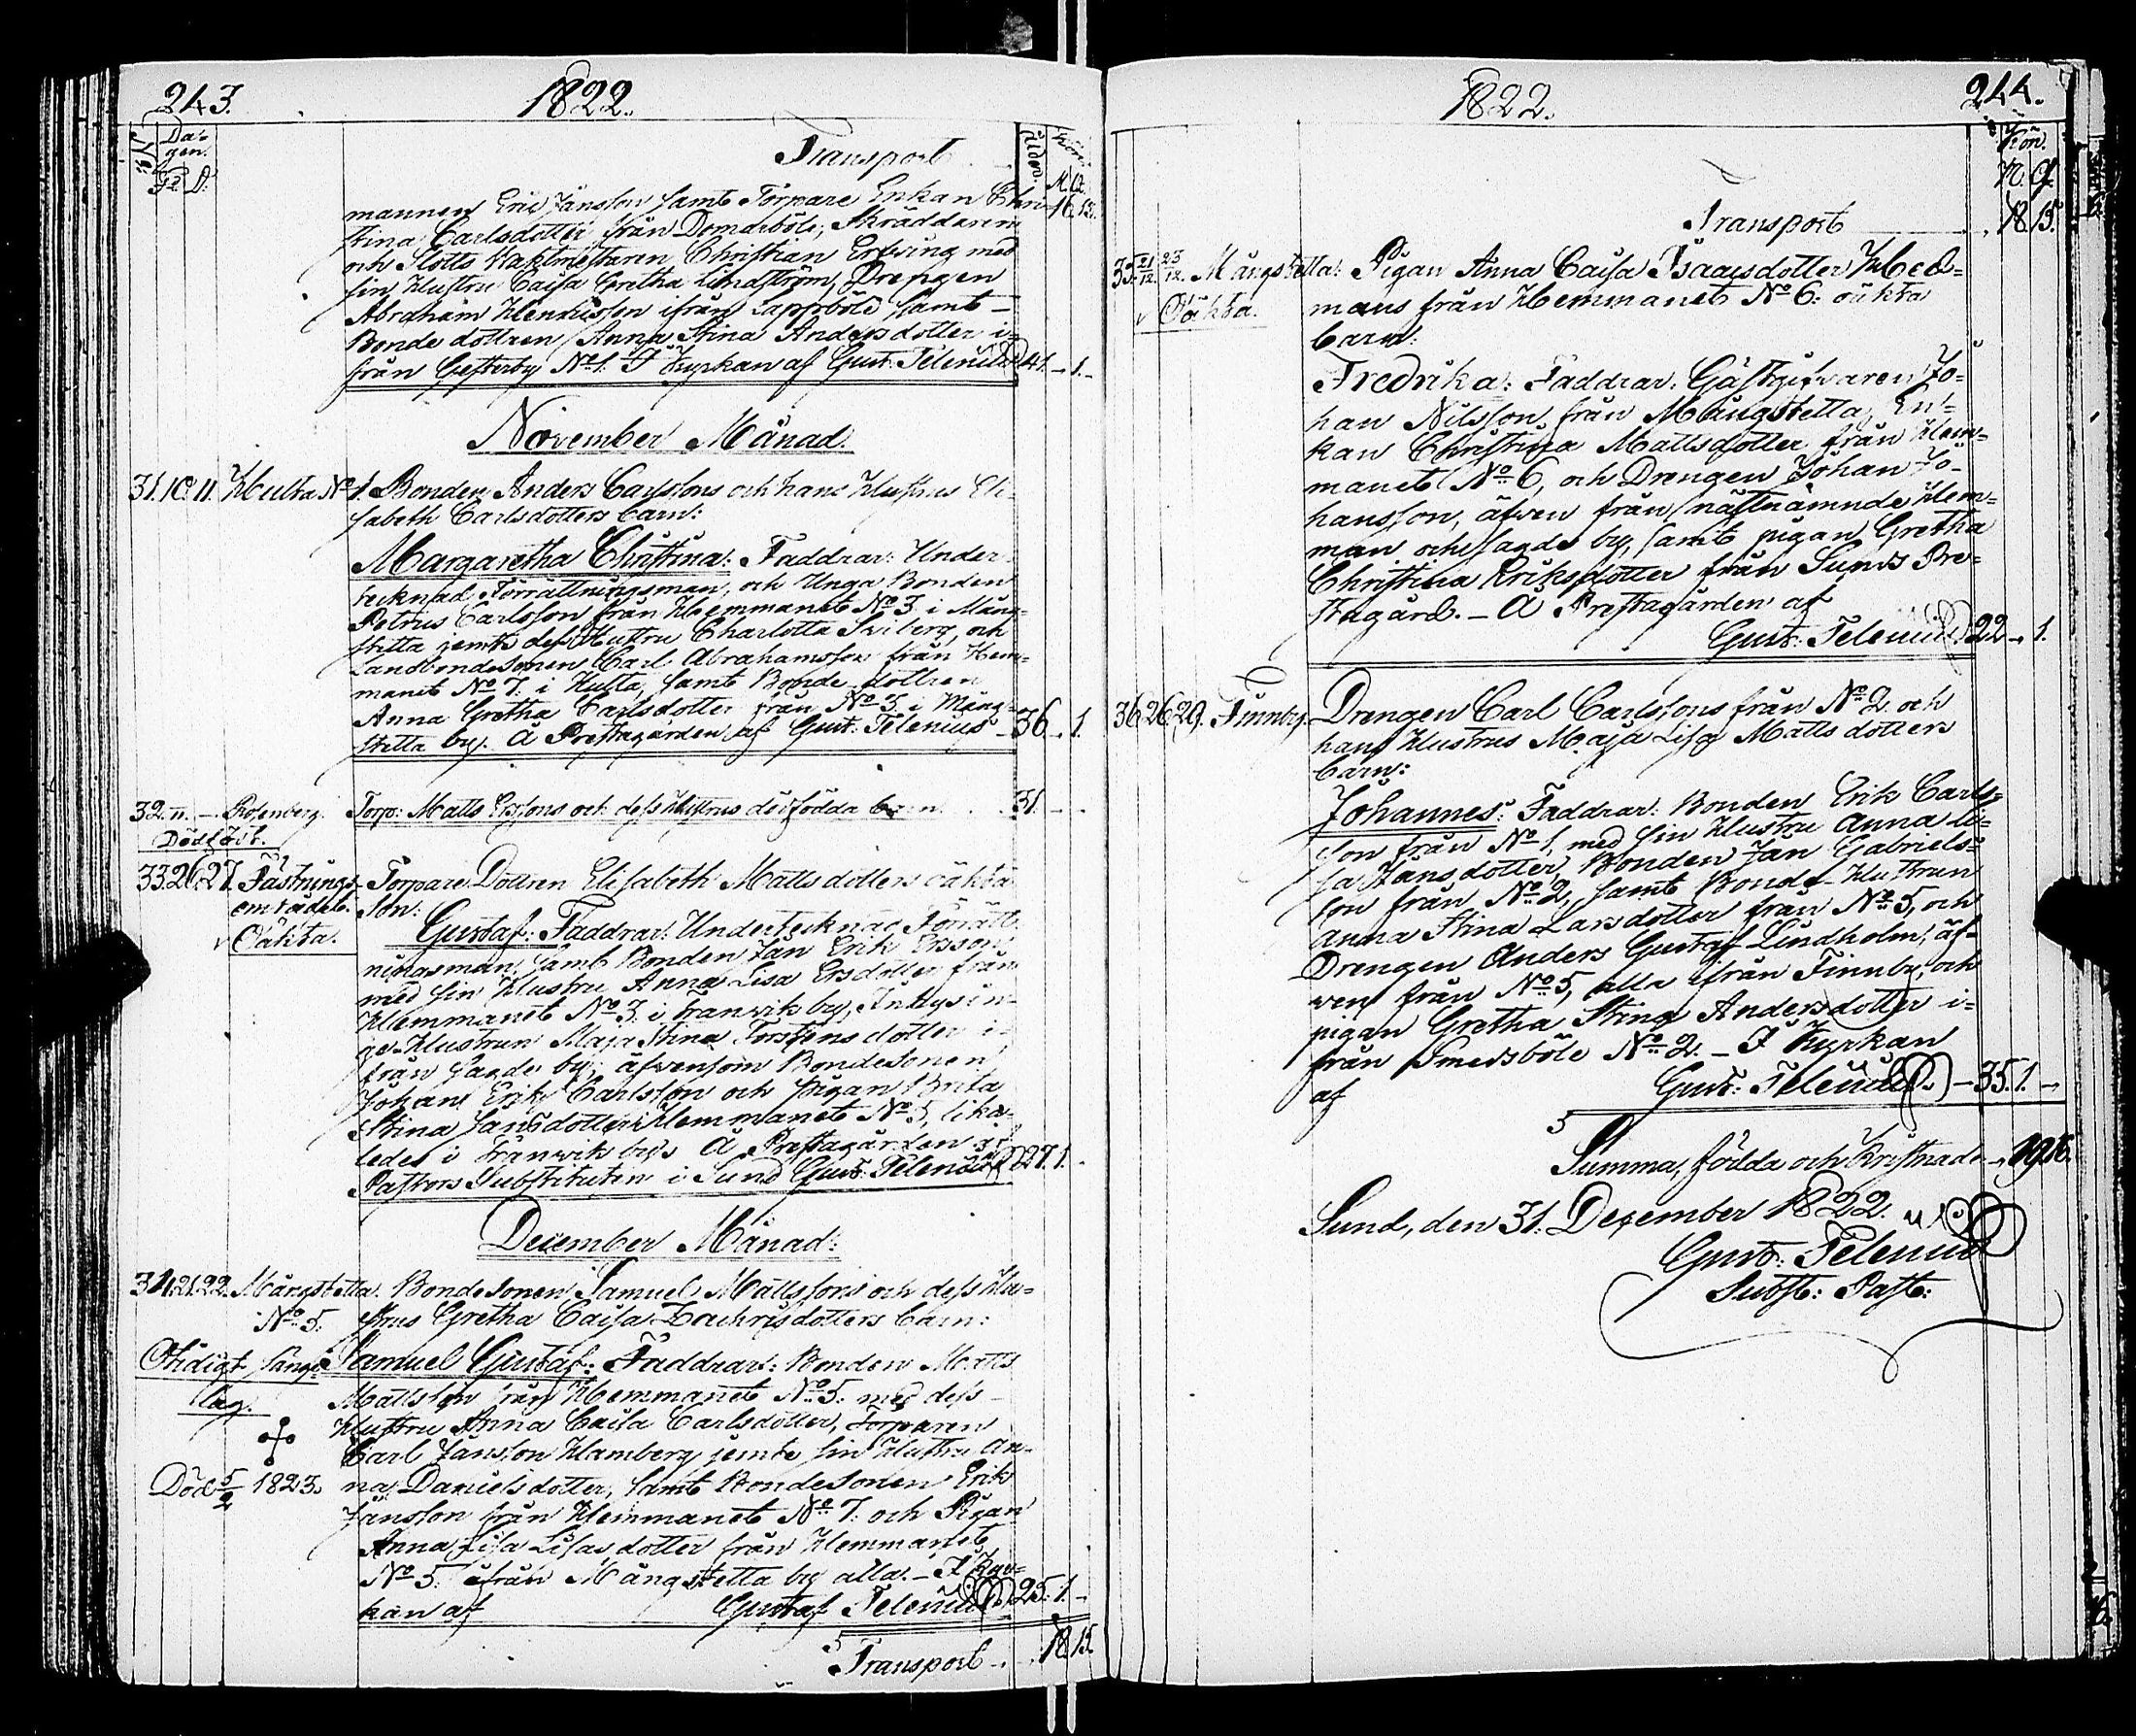 243.
1822.
No
Da-
gen.
Fd D.
Åldr.
Kön.
M. Q.
Transport
16. 13.
mannen Eric Jansson samt Torpare Enkan Chri-
stina Carlsdotter från Domarböle, Skräddaren
och Slotts Vaktmestaren Christian
med
sin Hustru Caisa Gretha Lindström, Drengen
Abraham Henricsson ifrån Lappböle samt
Bonde dottren Anna Stina Andersdotter i-
från Gesterby No 1. I Kyrkan af Gust: Telenius 41. - 1. -
November Månad.
31. 10. 11. Hulta No 1. Bonden Anders Carlssons och hans Hustrus Eli-
sabeth Carlsdotters barn:
Margaretha Christina: Faddrar: Under-
tecknad Förrättningsman, och Unga Bonden
Petrus Carlsson från Hemmanet No 3 i Mång-
stetta jemte dess Hustru Charlotta
och
Landbondesonen Carl Abrahamsson från Hem-
manet No 7. i Hulta, samt Bonde dottren
Anna Gretha Carlsdotter från No 3 i Mång-
stetta by. Å Prestagården af Gust: Telenius - 36. - 1.
32. 11. - Rosenberg. Torp: Matts Erssons och dess Hustrus dödfödda barn . . 31. - -
Dödfödt.
33. 26. 27. Fästnings- Torpare Dottren Elisabeth Mattsdotters oäkta
området. son:
v Oäkta. Gustaf: Faddrar: Undertecknad Förrätt-
ningsman, samt Bonden Jan Erik Ersson
med sin Hustru Anna Lisa Ersdotter från
Hemmanet No 3. i Tranvik by, Inhysin-
ge Hustrun Maja Stina Torstensdotter i-
från sagde by; äfvensom Bondesonen
Johan Erik Carlsson och Pigan Brita
Stina Jansdotter Hemmanet No 5, lika-
ledes i Tranvik by. Å Prestagården af
Pastors Substituten i Sund Gust: Telenius 27. 1.
December Månad:
34. 21. 22. Mångstetta. Bondesonen Samuel Mattssons och dess Hu-
No 5. strus Gretha Caisa Zachrisdotters barn:
Otidigt sänge- Samuel Gustaf: Faddrar: Bonden Matts
lag. Mattsson från Hemmanet No 5. med dess
Hustru Anna Caisa Carlsdotter, Torparen
Carl Jansson Hamberg jemte sin Hustru An-
Död 5/2 1823. na Danielsdotter, samt Bondesonen Erik
Jansson från Hemmanet No 7. och Pigan
Anna Lisa
dotter från Hemmanet
No 5. ifrån Mångstetta by alla. - I Kyr-
kan af Gustaf Telenius 25. 1. -
Transport - . . 18. 15.
1822.
244.
Kön.
M. Q.
Transport . . 18. 15.
35. 21/12. 23/12. Mångstetta: Pigan Anna Caisa Isaacsdotter Hed-
v Oäkta. mans från Hemmanet No 6. oäkta
barn:
Fredrika: Faddrar: Gästgifvaren Jo-
han Nilsson från Mångstetta, En-
kan Christina Mattsdotter från Hem-
manet No 6, och Drengen Johan Jo-
hansson, äfven från nästnämnde Hem-
man och sagde by, samt pigan Gretha
Christina Eriksdotter från Sunds Pre-
stagård. - Å Prestagården af
Gust: Telenius 22 - 1.
36. 26. 29. Finnby. Drengen Carl Carlssons från No 2. och
hans Hustrus Maja Lisa Mattsdotters
barn:
Johannes: Faddrar: Bonden Erik Carls-
son från No 1, med sin Hustru Anna Li-
sa Hansdotter, Bonden Jan Gabriels-
son från No 2, samt Bonde-Hustrun
Anna Stina Larsdotter från No 5, och
Drengen Anders Gustaf Lindholm, äf-
ven från No 5, alla ifrån Finnby, och
pigan Gretha Stina Andersdotter i-
från Smedsböle No 2. - I Kyrkan
af Gust: Telenius - 35. 1. -
Summa, födda och Kristnade - 19. 16.
Sund, den 31. December 1822.
Gust: Telenius
Subst: Past: